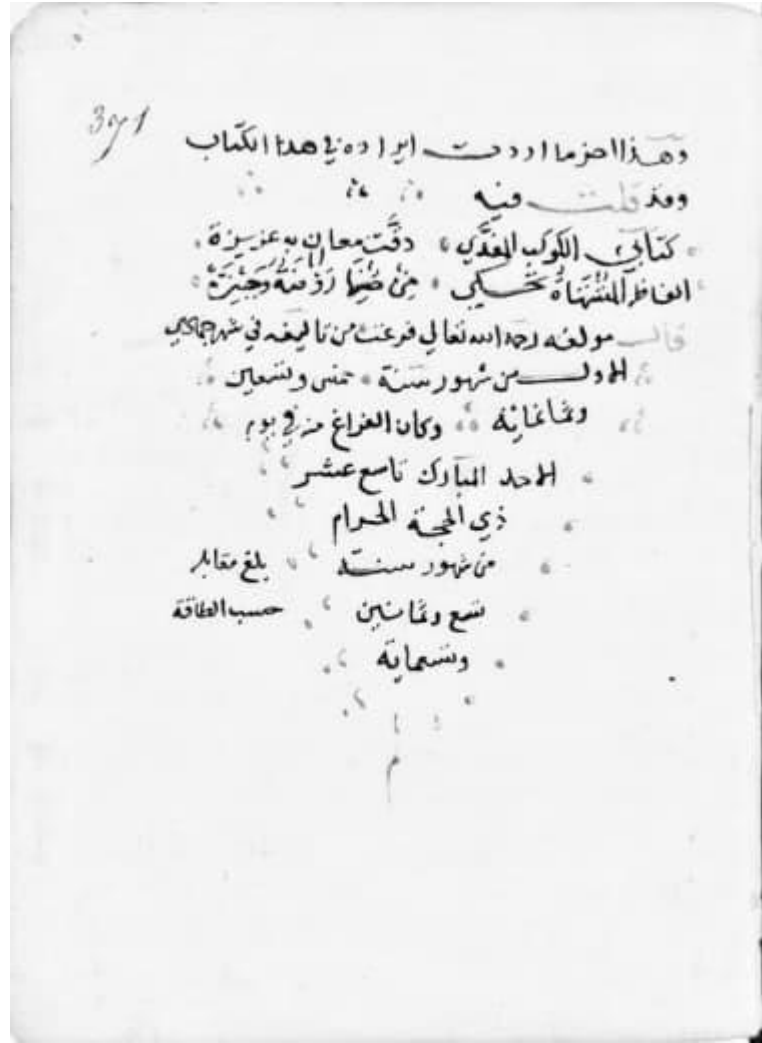 371
وهذا اخر ما اردت ايراده في هذا الكتاب
وقد قلت فيه
كتابي الكوكب المفدي دقت معان به عزيزة
الفاظه المشتهاة تحكي من ضمنها روضة وجيزة
قال مولفه رحمه الله تعالى فرغت من تاليفه في شهر جمادي
الاول من شهور سنة خمس وتسعين
وثمانمائة وكان الفراغ منه في يوم
الاحد المبارك تاسع عشر
ذي الحجة الحرام
من شهور سنة بلغ مقابلة
تسع وثمانين حسب الطاقة
وتسعماية
م